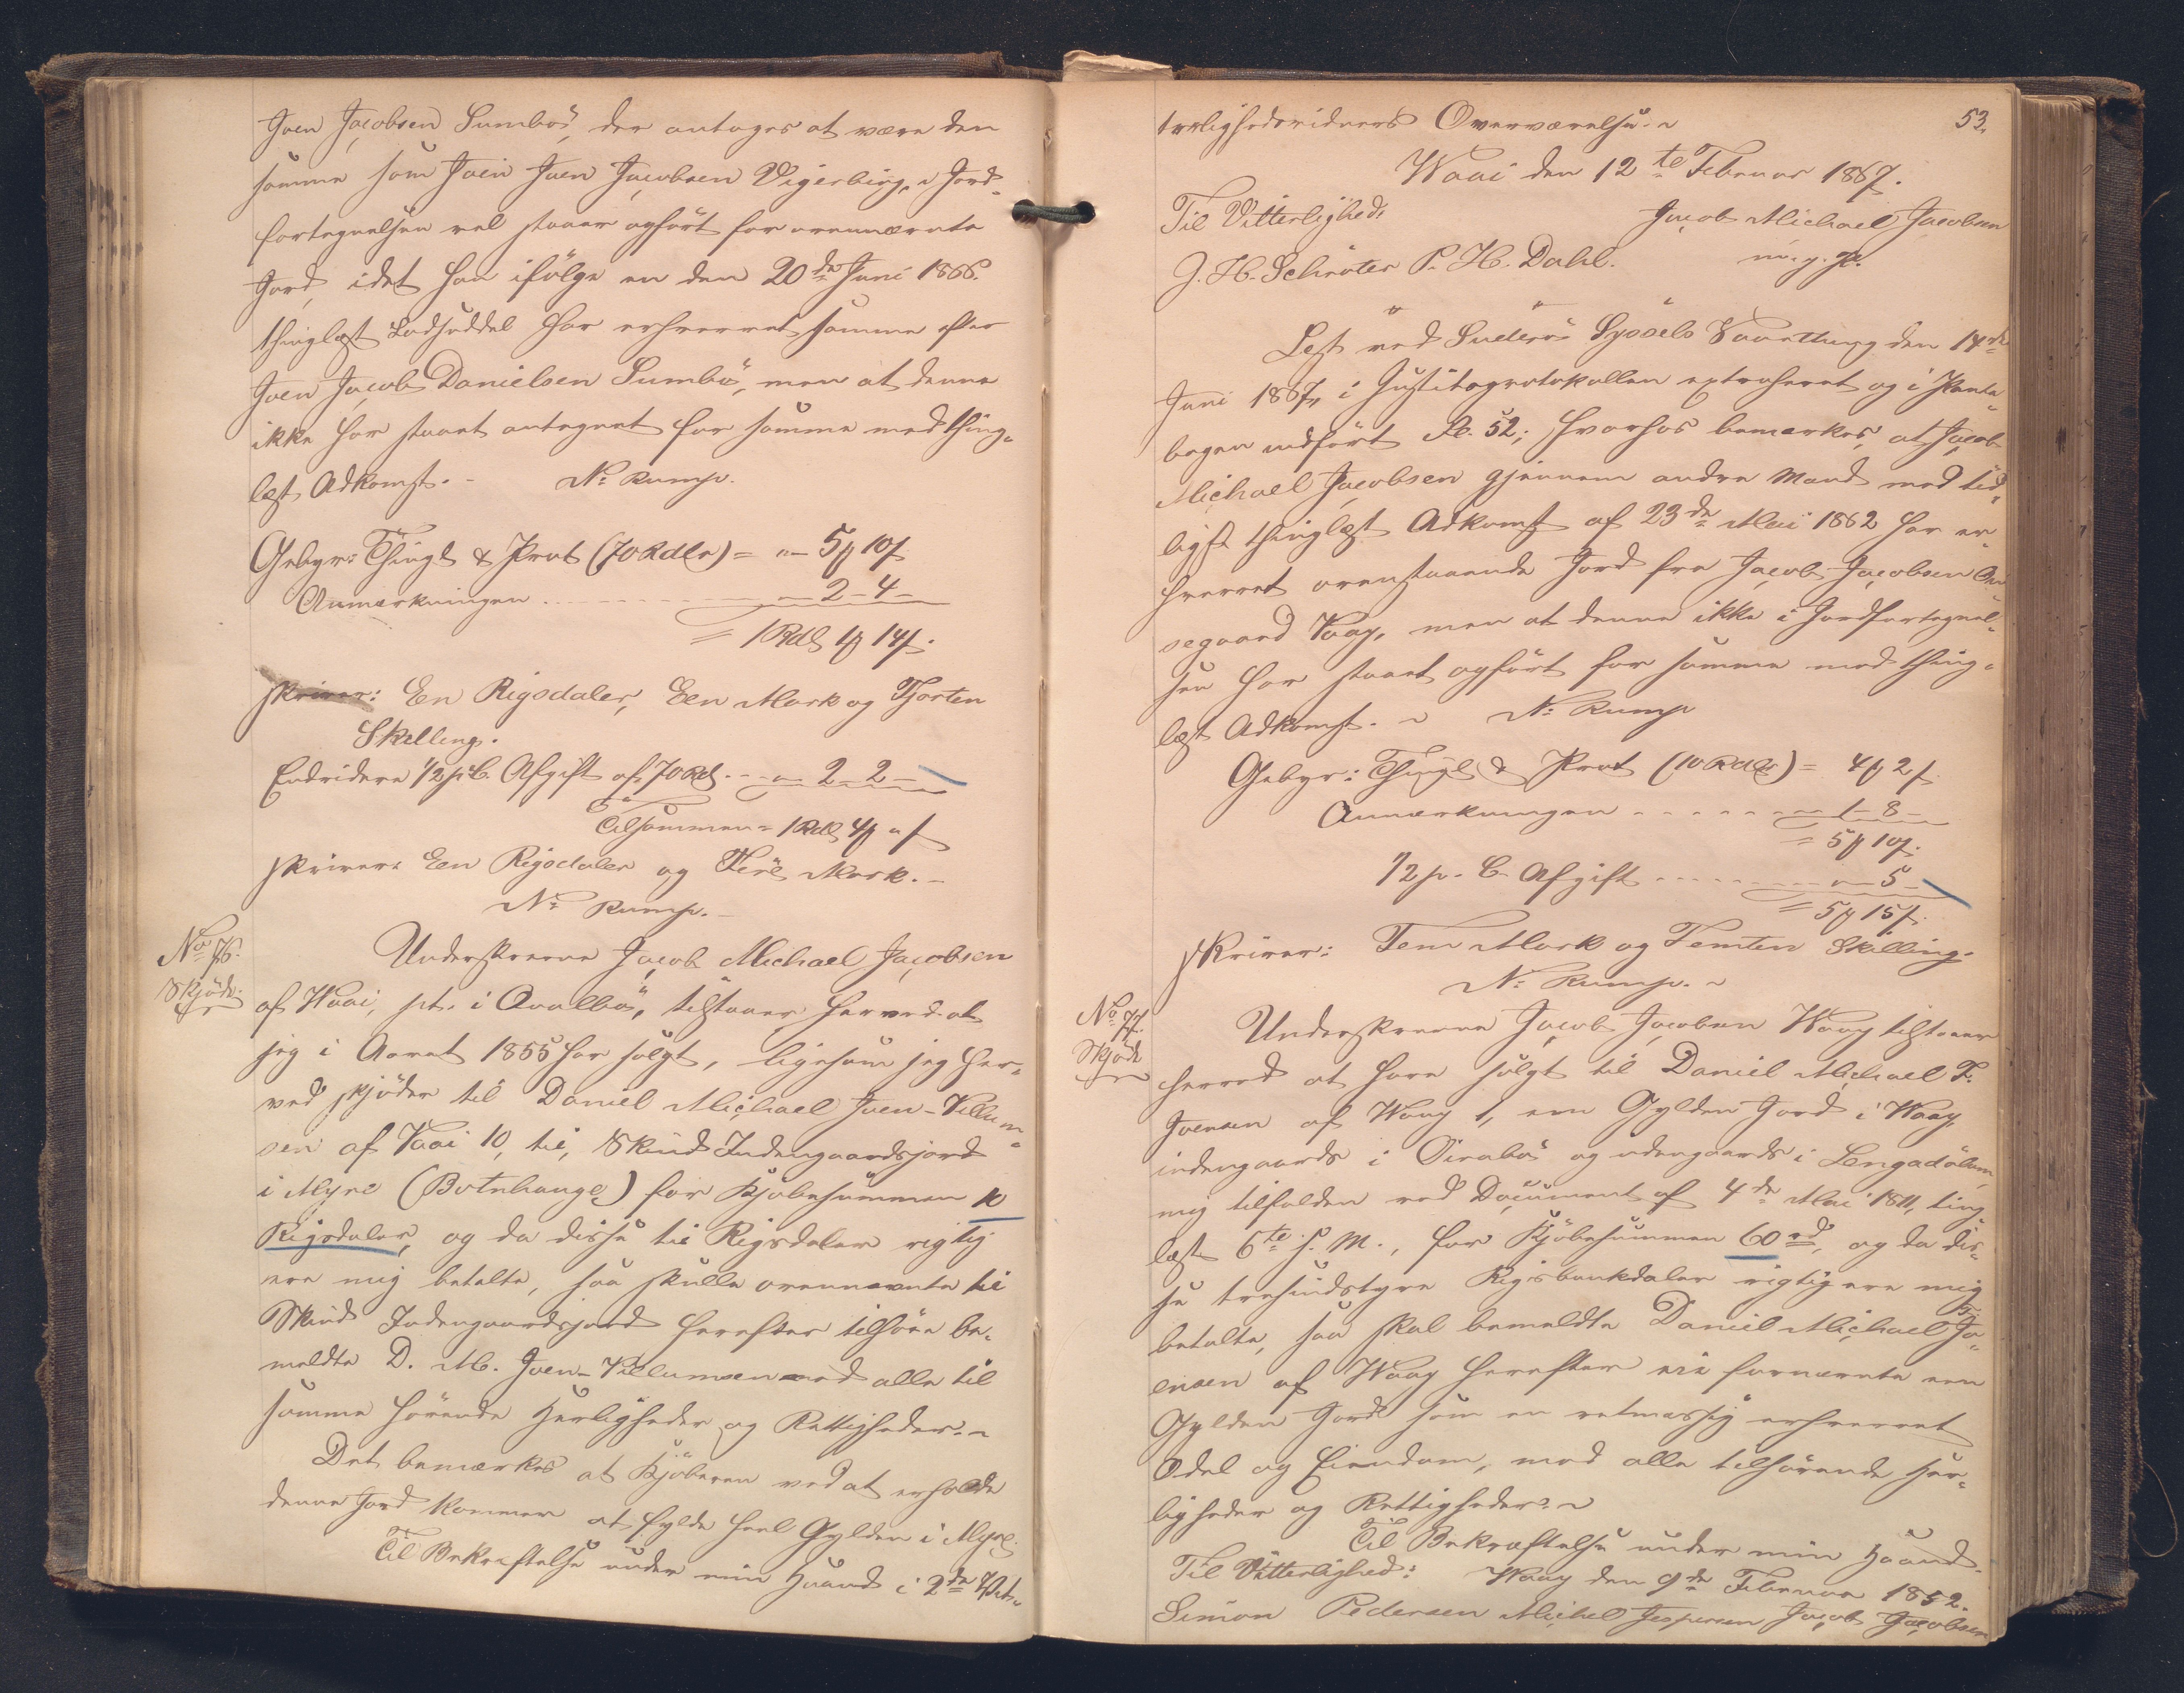 Joen Jacobsen Sumbö, der antages at være den
samme som Joen Jacobsen Vigerbirg, i Jord-
fortegnelsen vel staaer opført for ovennævnte
Jord, idet han ifølge en den 20de Juni 1866
thinglæst Lodseddel har erhvervet samme efter
Joen Jacob Danielsen Sumbö, men at denne
ikke har staaet antegnet for samme med thing-
læst Adkomst. - N. Rump.
Gebyr: Thingl & Prot (70 Rdlr) = " - 5 ℔ 10 ſ
Anmærkningen . . . - 2 - 4 -
= 1 Rdl 1 ℔ 14 ſ.
skriver: En Rigsdaler, Een Mark og Fjorten
Skilling.
Endvidere 1/2 p C. Afgift af 70 Rd. - " - 2 - 2 -
Tilsammen = 1 Rdl 4 ℔ " ſ
skriver: Een Rigsdaler og Fire Mark. -
N. Rump. -
No 76.
Skjöde.
Underskrevne Jacob Michael Jacobsen
af Waai, pt. i Qvalbö, tilstaaer herved at
jeg i Aaret 1855 har solgt, ligesom jeg her-
ved skjöder til Daniel Michael Joen-Villum-
sen af Vaai 10, ti, Skind Indengaardsjord
i Myre (Botnhauge) for Kjøbesummen 10
Rigsdaler, og da disse ti Rigsdaler rigtig
ere mig betalte, saa skulle ovennævnte ti
Skind Indengaardsjord herefter tilhøre be-
meldte D. M. Joen-Villumsen med alle til
samme hørende Herligheder og Rettigheder. -
Det bemærkes at Kjöberen ved at erholde
denne Jord kommer at fylde heel Gylden i Myre.
Til Bekræftelse under min Haand i 2de Vit-
53.
terlighedsvidners Overværelse. -
Waai den 12te Februar 1867.
Til Vitterlighed: Jacob Michael Jacobsen
J. H. Schröter P. H. Dahl. m. p. P.
Læst ved Suderö Syssels Vaarthing den 14de
Juni 1867, i Justitsprotokollen extraheret og i Pante-
bogen indført Fo. 52; hvorhos bemærkes, at Jacob
Michael Jacobsen gjennem andre Mand med tid-
ligst thinglæst Adkomst af 23de Mai 1862 har er-
hvervet ovenstaaende Jord fra Jacob Jacobsen
segaard Vaag, men at denne ikke i Jordfortegnel-
sen har staaet opført for samme med thing-
læst Adkomst. - N. Rump
Gebyr: Thingl & Prot (10 Rdlr) = 4 ℔ 2 ſ.
Anmærkningen . . . . - 1 - 8 -
= 5 ℔ 10 ſ.
1/2 p. C. Afgift . . . . - " - 5 -
= 5 ℔ 15 ſ.
skriver: Fem Mark og Femten Skilling.
N. Rump. -
No 77.
Skjöde
Underskrevne Jacob Jacobsen Waag tilstaaer
herved at have solgt til Daniel Michael F.
Joensen af Waag 1, een Gylden Jord i Waag,
indengaards i Öirabö og udengaards i Lengadölum
mig tilfalden ved Document af 4de Mai 1811, ting-
læst 6te s. M., for Kjöbesummen 60 rd, og da dis-
se tresindstyve Rigsbankdaler rigtig ere mig
betalte, saa skal bemeldte Daniel Michael F. Jo-
ensen af Waag herefter eie fornævnte een
Gylden Jord som en retmæssig erhvervet
Odel og Eiendom, med alle tilhörende Her-
ligheder og Rettigheder. -
Til Bekræftelse under min Haand.
Til Vitterlighed: Waag den 9de Februar 1852.
Simon Pedersen Michel Jespersen Jacob Jacobsen